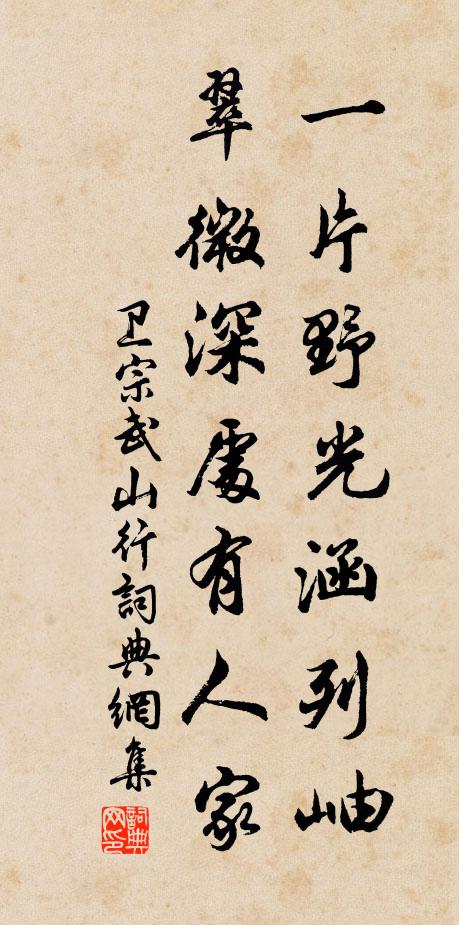 一片野光涵列岫
翠微深處有人家
卫宗武山行詞典網集
詞典網印